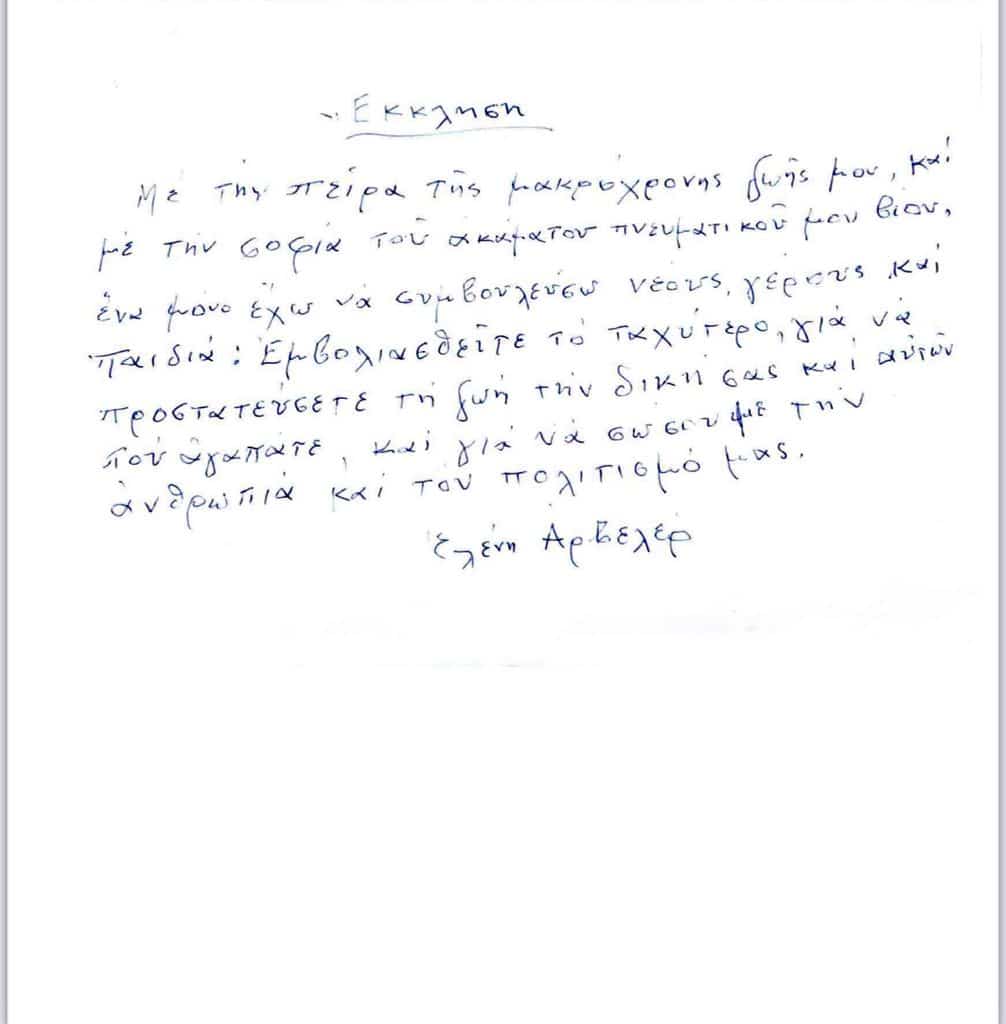 Έκκληση
Μέ τήν πείρα τῆς μακρόχρονης ζωῆς μου, καί
μέ τήν σοφία τοῦ ἀκάματου πνευματικοῦ μου βίου,
ἕνα μόνο ἔχω νά συμβουλεύσω νέους, γέρους καί
παιδιά: Ἐμβολιασθεῖτε τό ταχύτερο, γιά νά
προστατεύσετε τή ζωή τήν δική σας καί αὐτῶν
πού ἀγαπᾶτε, καί γιά νά σώσουμε τήν
ἀνθρωπιά καί τον πολιτισμό μας.
Ἑλένη Ἀρβελέρ